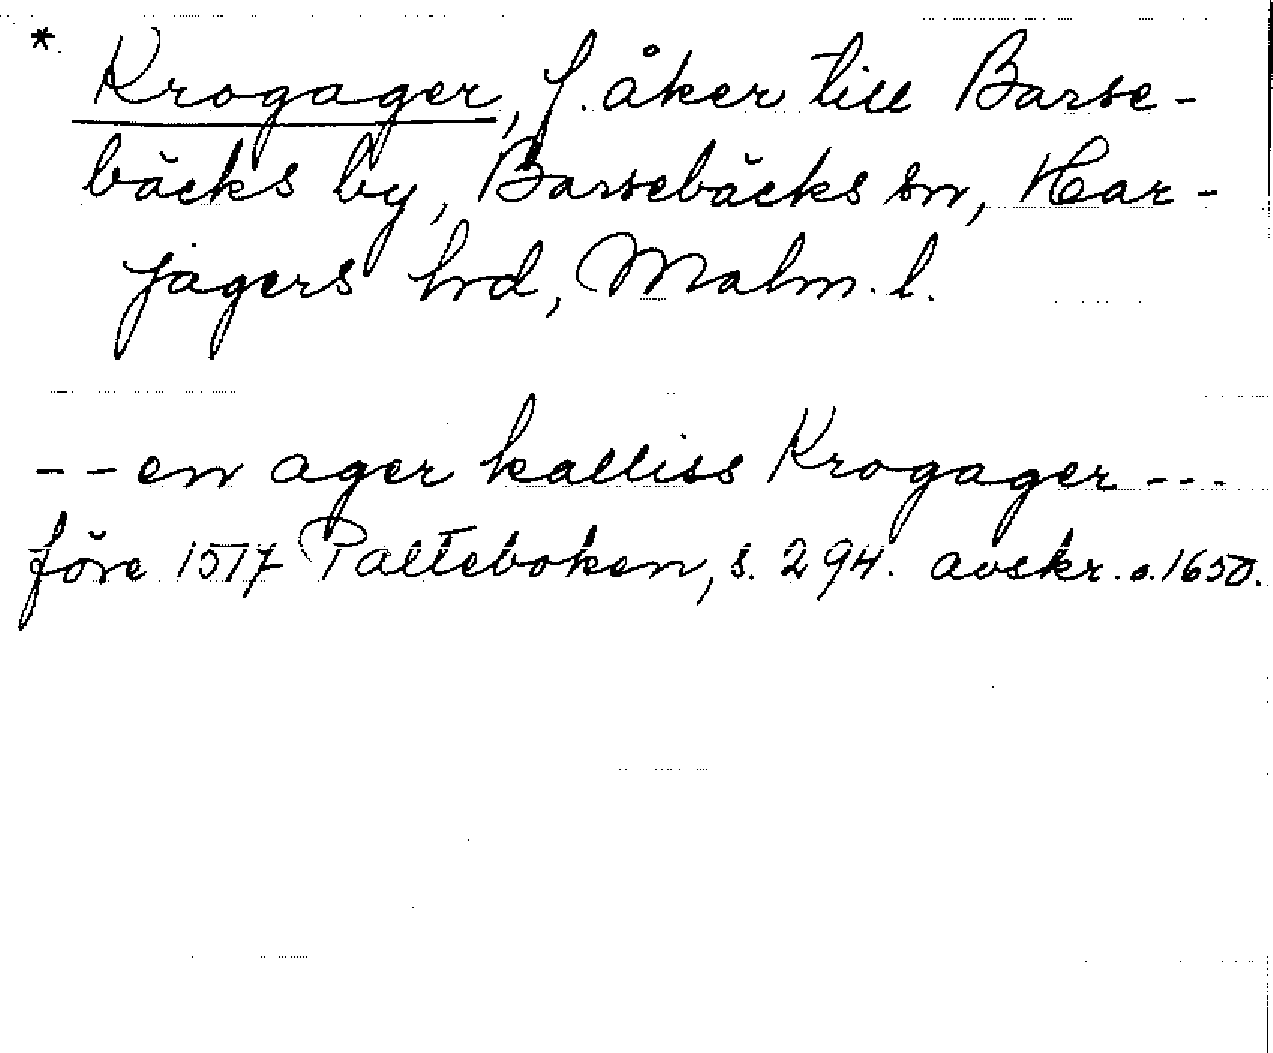 * Krogager, f. åker till Barse-
bäcks by, Barsebäcks sn, Har-
jagers hrd, Malm. l.
-- en ager kalliss Krogager ---
före 1517 Palteboken, s. 294. avskr. o. 1650.